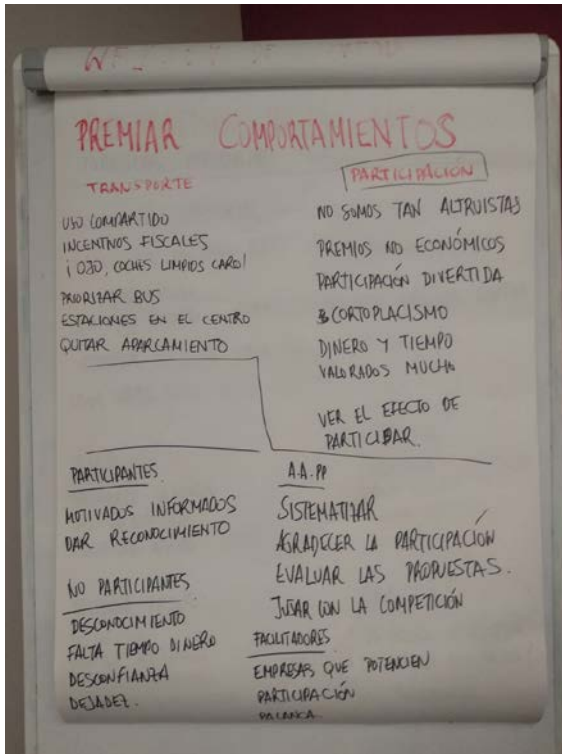 PREMIAR COMPORTAMIENTOS
TRANSPORTE
USO COMPARTIDO
INCENTIVOS FISCALES
¡OJO, COCHES LIMPIOS CARO!
PRIORIZAR BUS
ESTACIONES EN EL CENTRO
QUITAR APARCAMIENTO
PARTICIPACIÓN
NO SOMOS TAN ALTRUISTAS
PREMIOS NO ECONÓMICOS
PARTICIPACIÓN DIVERTIDA
CORTOPLACISMO
DINERO Y TIEMPO
VALORADOS MUCHO
VER EL EFECTO DE
PARTICIPAR.
PARTICIPANTES
MOTIVADOS INFORMADOS
DAR RECONOCIMIENTO
NO PARTICIPANTES
DESCONOCIMIENTO
FALTA TIEMPO DINERO
DESCONFIANZA
DEJADEZ.
A.A.PP
SISTEMATIZAR
AGRADECER LA PARTICIPACIÓN
EVALUAR LAS PROPUESTAS.
JUGAR CON LA COMPETICIÓN
FACILITADORES
EMPRESAS QUE POTENCIEN
PARTICIPACIÓN
PALANCA